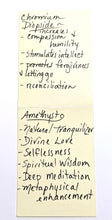 Chromium
Diopside -
- Increases
- compassion &
humility
- Stimulates intellect
- promotes forgiveness
- letting go
- reconciliation
Amethyst
- Natural Tranquilizer
- Divine Love
- Selflessness
- Spiritual Wisdom
- Deep meditation
- metaphysical
enhancement